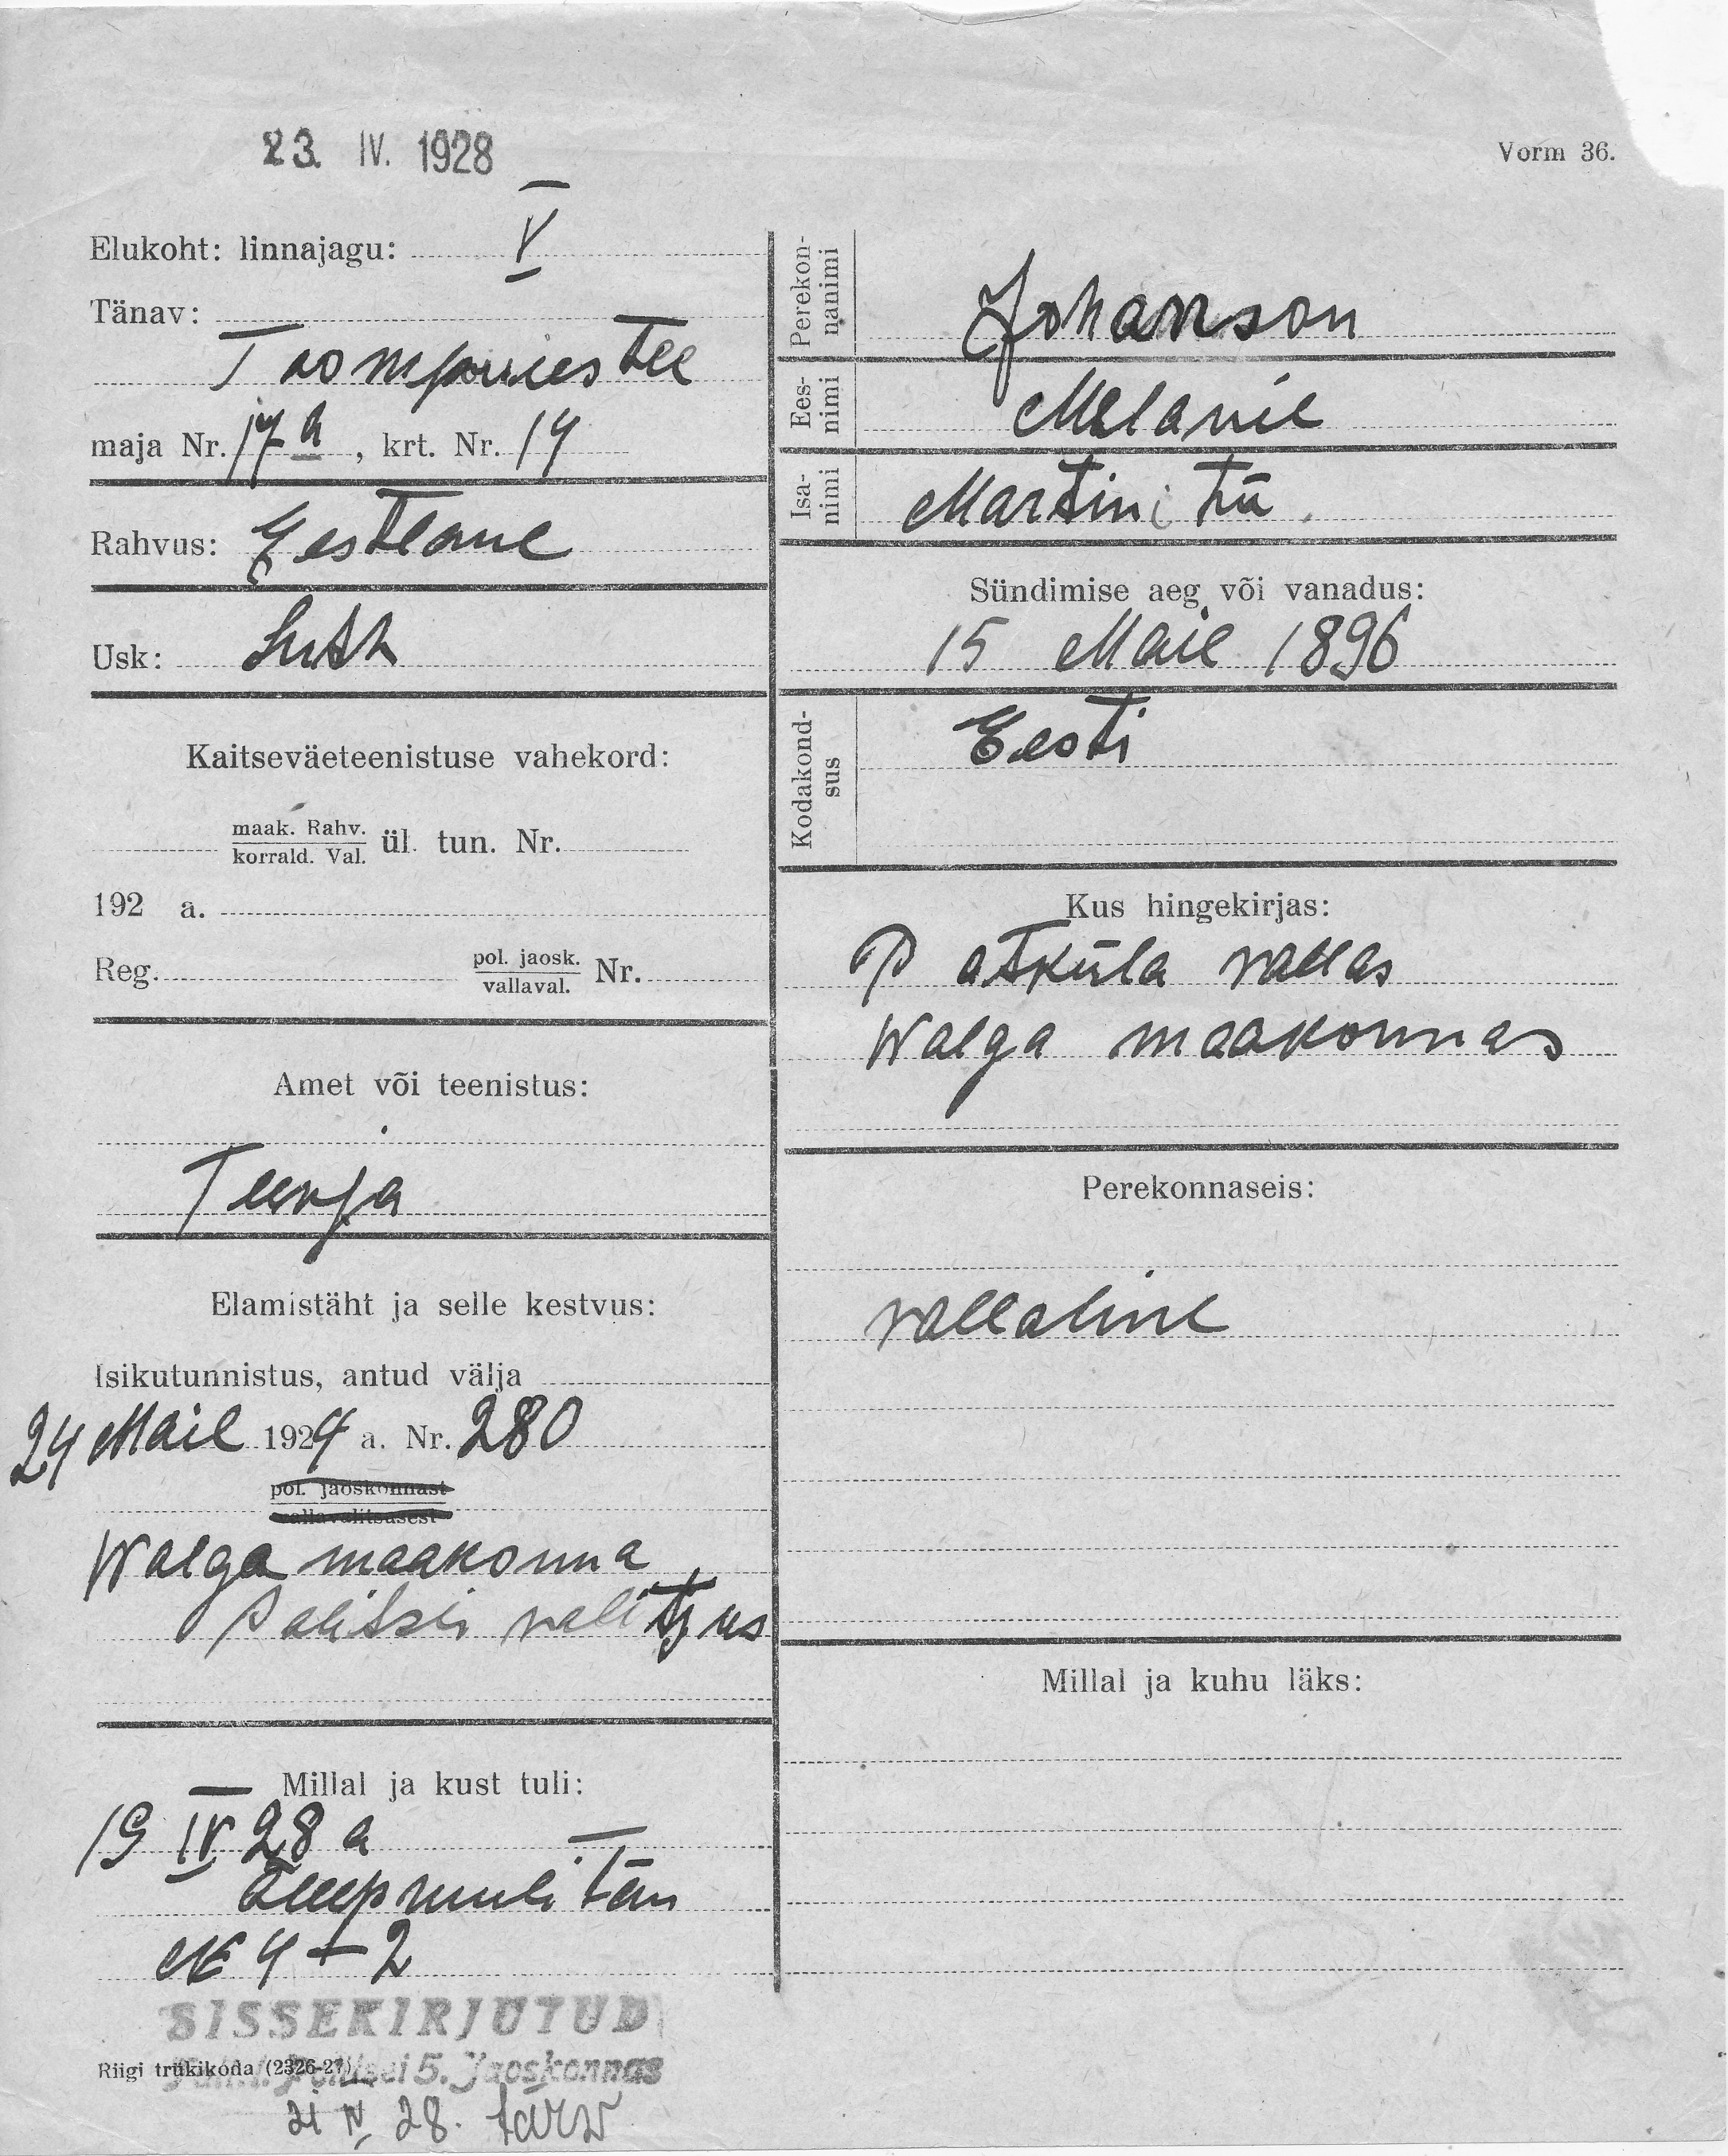 23. IV. 1928
Vorm 36.
Elukoht: linnajagu: V
Tänav:
Toompuiestee
maja Nr. 17a, krt. Nr. 14
Rahvus: Eestlane
Usk: Luth
Kaitseväeteenistuse vahekord:
maak. Rahv.
korrald. Val. ül. tun. Nr.
192 a.
Reg. pol. jaosk.
vallaval. Nr.
Amet või teenistus:
Teenja
Elamistäht ja selle kestvus:
Isikutunnistus, antud välja
24 Mail 1924 a. Nr. 280
pol. jaoskonnast
vallavalitsusest
Walga maakonna
Politsei valitsus
Millal ja kust tuli:
19 IV 28 a
tän
№ 4-2
SISSEKIRJUTUD
Politsei 5. Jaoskonnas
Riigi trükikoda (2326-27)
21 IV 28.
Perekon-
nanimi
Johanson
Ees-
nimi
Melanie
Isa-
nimi
Martini tü.
Sündimise aeg või vanadus:
15 Mail 1896
Kodakond-
sus
Eesti
Kus hingekirjas:
Patküla vallas
Walga maakonnas
Perekonnaseis:
vallaline
Millal ja kuhu läks: